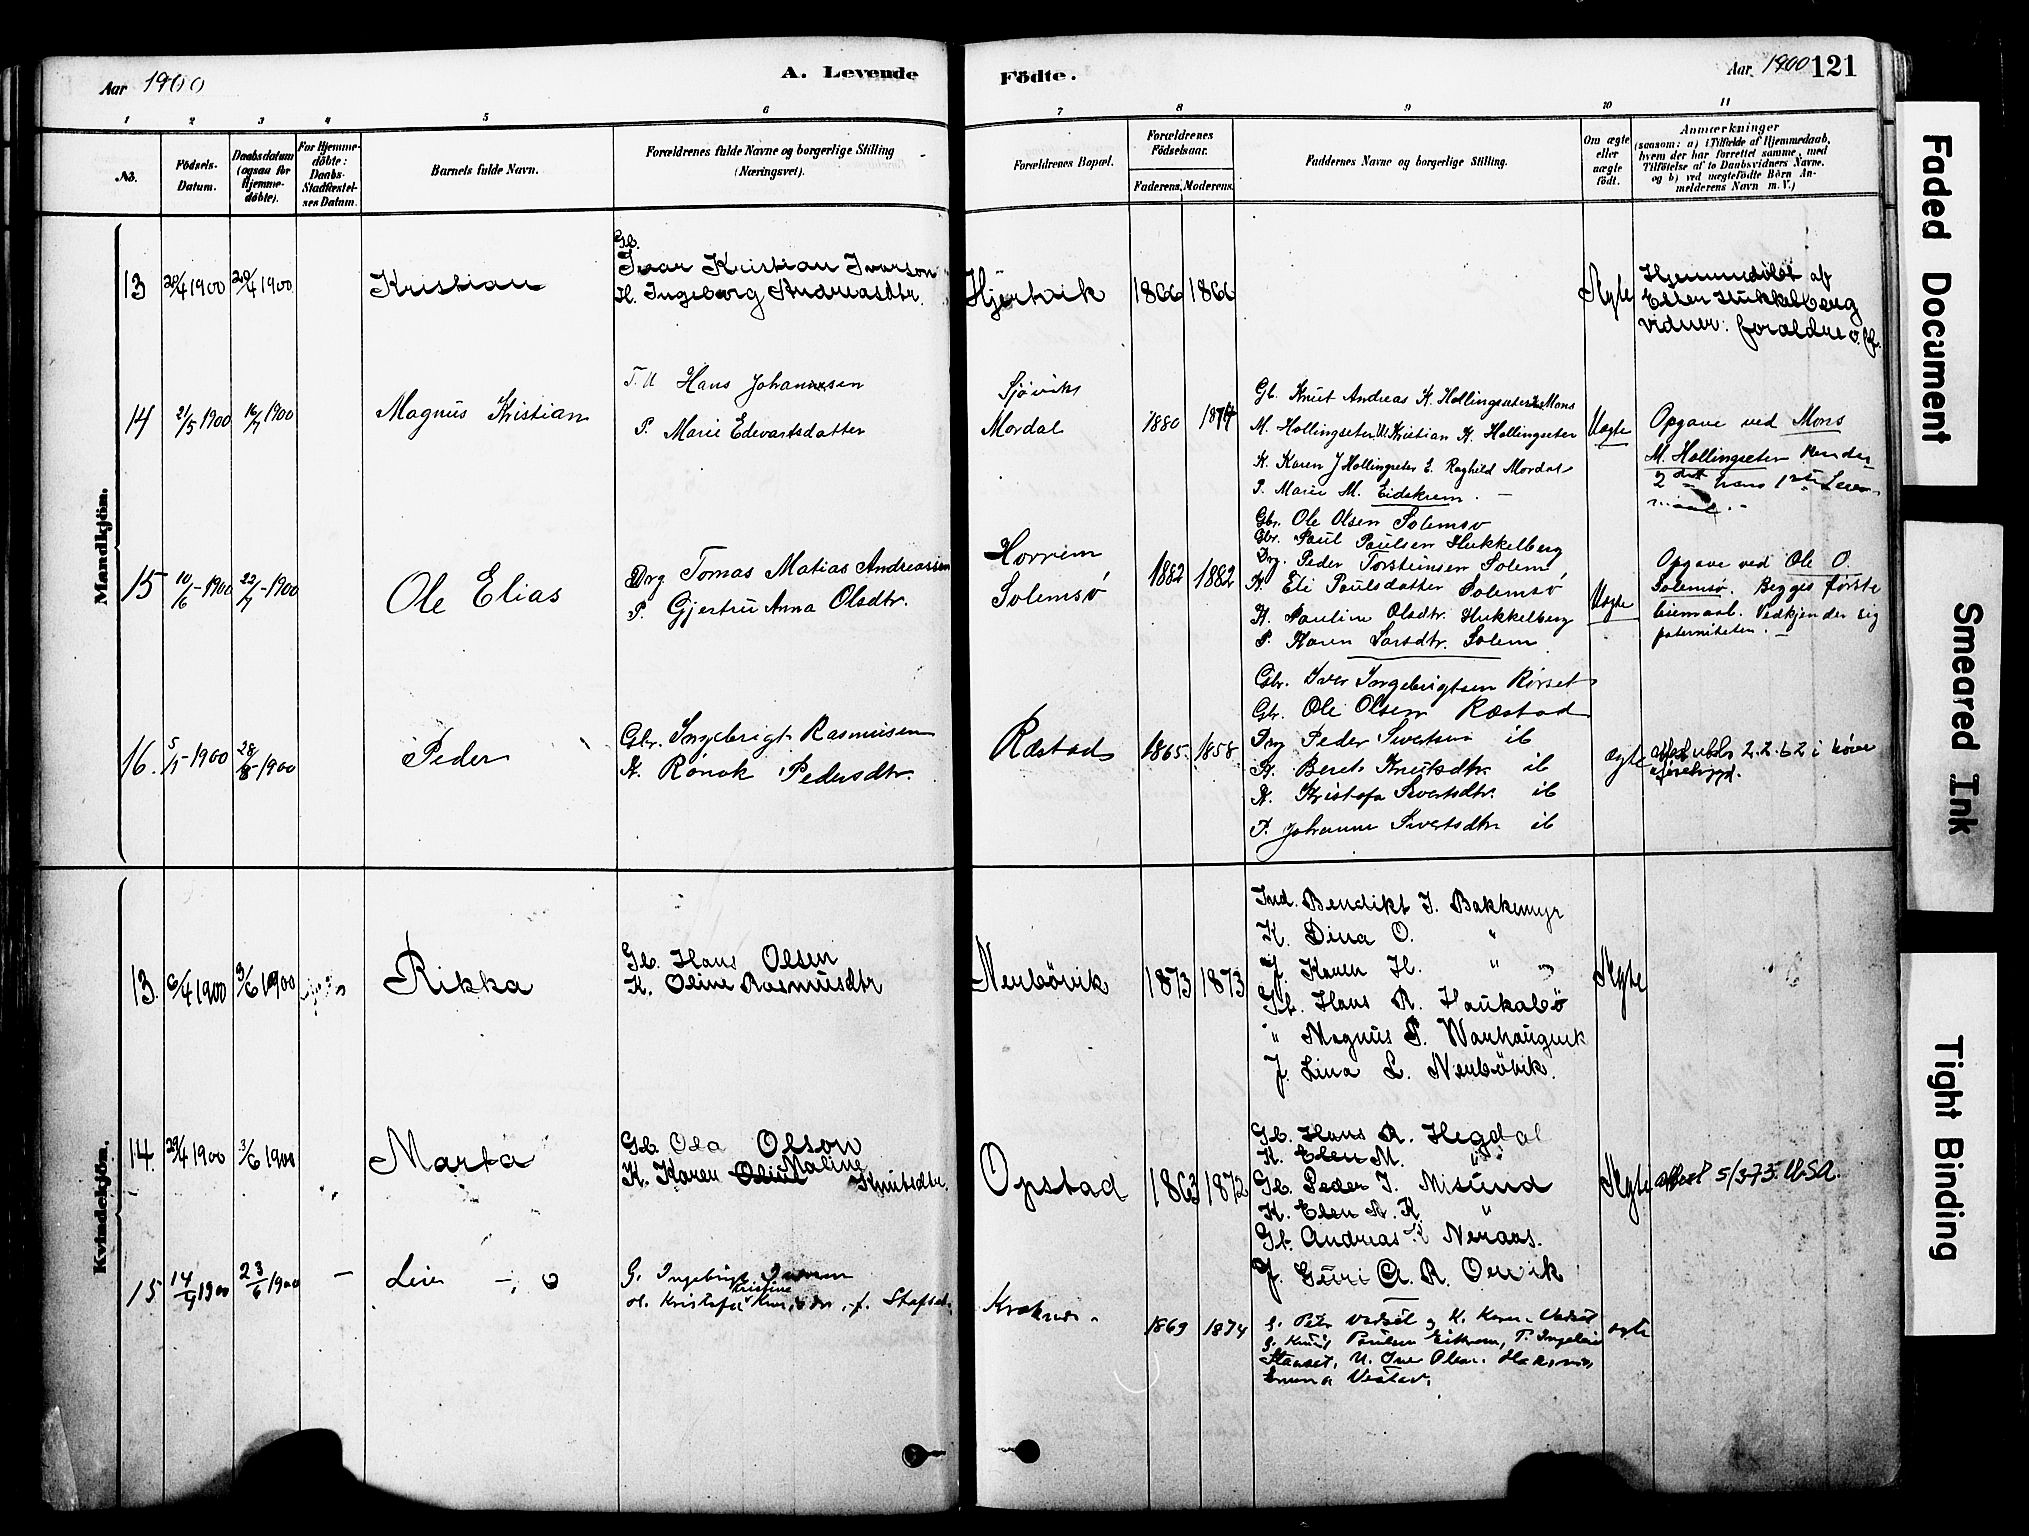 Aar 1900
A. Levende
Födte.
Aar 1900 121
1 2 3 4 5 6 7 8 9 10 11
No.
Födsels-
Datum.
Daabsdatum
(ogsaa for
Hjemme-
döbte).
For Hjemme-
döbte:
Daabs-
Stadfæstel-
ses Datum.
Barnets fulde Navn.
Forældrenes fulde Navne og borgerlige Stilling
(Næringsvei).
Forældrenes Bopæl.
Forældrenes
Födselsaar.
Faderens. Moderens.
Faddernes Navne og borgerlige Stilling.
Om ægte
eller
uægte
födt.
Anmærkninger
(saasom: a) i Tilfælde af Hjemmedaab,
hvem der har forrettet samme, med
Tilföielse af to Daabsvidners Navne,
og b) ved uægtefödte Börn An-
melderens Navn m. V.)
Mandkjön.
13 20/4 1900 20/4 1900
Kristian
Gb.
Ivar Kristian Ivarson
H. Ingeborg Andreasdtr.
Hjertvik
1866 1866
Ægte
Hjemmedöbt af
Ellen Hukkelberg
vidner: forældre
14 21/5 1900 16/7 1900
Magnus Kristian
T. U Hans Johannesen
P. Marie Edevartsdatter
Sjöviks
Mordal
1880 1877
Gb. Knut Andreas K. Hollingseter Mons
M. Hollingseter, U. Kristian K. Hollingseter
K. Karen J Hollingseter E. Raghild Mordal
P. Marie M. Eidskrem. —
Uægte
Opgave ved Mons
M. Hollingseter
2 hans 1
15 10/6 - 1900 22/7 - 1900
Ole Elias
Drg Tomas Matias Andreassen
P. Gjertru Anna Olsdtr.
Horrem
Solemsø
1882 1882
Gbr. Ole Olsen Solemsø
Gbr. Paul Paulsen Hukkelberg
Drg. Peder Torsteinsen Solem
K. Eli Paulsdatter Solemsø
K. Pauline Olsdtr. Hukkelberg
P. Karen Larsdtr. Solem
Uægte
Opgave ved Ole O.
Solemsø. Begges første
leiermaal. Vedkjender sig
paterniteten. —
16. 5/7 - 1900 28/8 - 1900
Peder
Gbr. Ingebrigt Rasmusen
K. Rønok Pedersdtr.
Ræstad
1865. 1858.
Gbr. Iver Ingebrigtsen Rørset
Gbr. Ole Olsen Ræstad
Drg Peder Sivertsen ib
K. Beret Knutsdtr. ib
K. Kristofa Sivertsdtr. ib
P. Johanne Sivertsdtr ib
ægte
2.2.62 i
Kvindekjön.
13. 6/4 1900 3/6 1900
Rikka
Gb. Hans Olsen
K. Oline Rasmusdtr
Nerbövik
1873 1873
Ind. Bendikt I. Bakkemyr
K. Dina O. "
J. Karen H. " "
Gb. Hans R. Haukabö
" Magnus P.
J. Lina L. Nerbövik.
Ægte
14. 29/4 1900 3/6 1900
Marta
Gb. Ola Olson
K. Karen Maline Knutsdtr.
Opstad
1863 1872
Gb. Hans R. Hegdal
K. Elen M. "
Gb. Peder I. Misund
K. Elen A. R. "
Gb. Andreas K Neraas.
J. Guri A. R. Orvik
Ægte
5/3-73. USA.
15 14/4 1900 23/6 1900 —
G. Ingebrigt
Kristine
1869 1874
ægte
Faded Document
Smeared Ink
Tight Binding